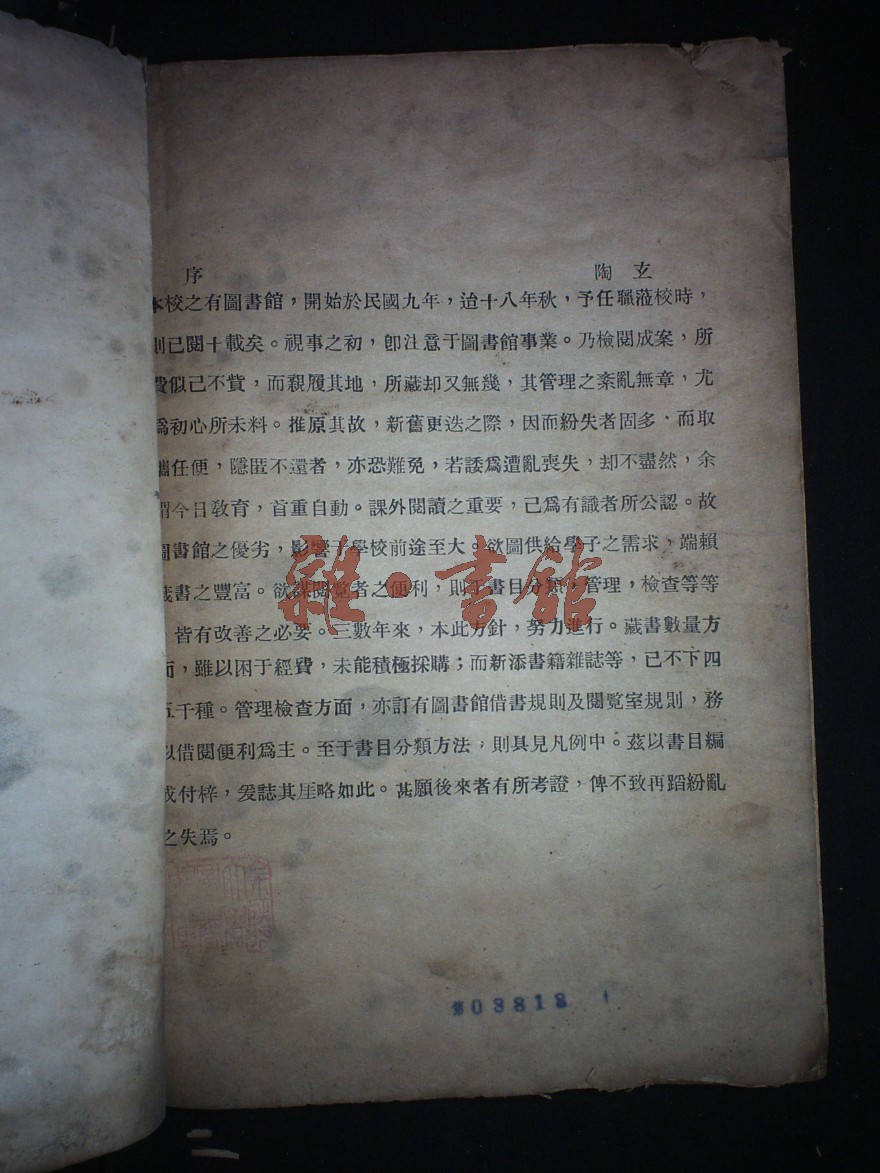 序 陶玄
本校之有圖書館，開始於民國九年，迨十八年秋，予任職蒞校時，
則已閱十載矣。視事之初，卽注意于圖書館事業。乃檢閱成案，所
費似已不貲，而親履其地，所藏却又無幾，其管理之紊亂無章，尤
爲初心所未料。推原其故，新舊更迭之際，因而紛失者固多，而取
攜任便，隱匿不還者，亦恐難免，若諉爲遭亂喪失，却不盡然，余
謂今日敎育，首重自動。課外閱讀之重要，已爲有識者所公認。故
圖書館之優劣，影響于學校前途至大。欲圖供給學子之需求，端賴
藏書之豐富。欲謀閱覽者之便利，則于書目分類，管理，檢查等等
，皆有改善之必要。三數年來，本此方針，努力進行。藏書數量方
面，雖以困于經費，未能積極採購；而新添書籍雜誌等，已不下四
五千種。管理檢查方面，亦訂有圖書館借書規則及閱覽室規則，務
以借閱便利爲主。至于書目分類方法，則具見凡例中。茲以書目編
成付梓，爰誌其厓略如此。甚願後來者有所考證，俾不致再蹈紛亂
之失焉。
雜·書館
第03818